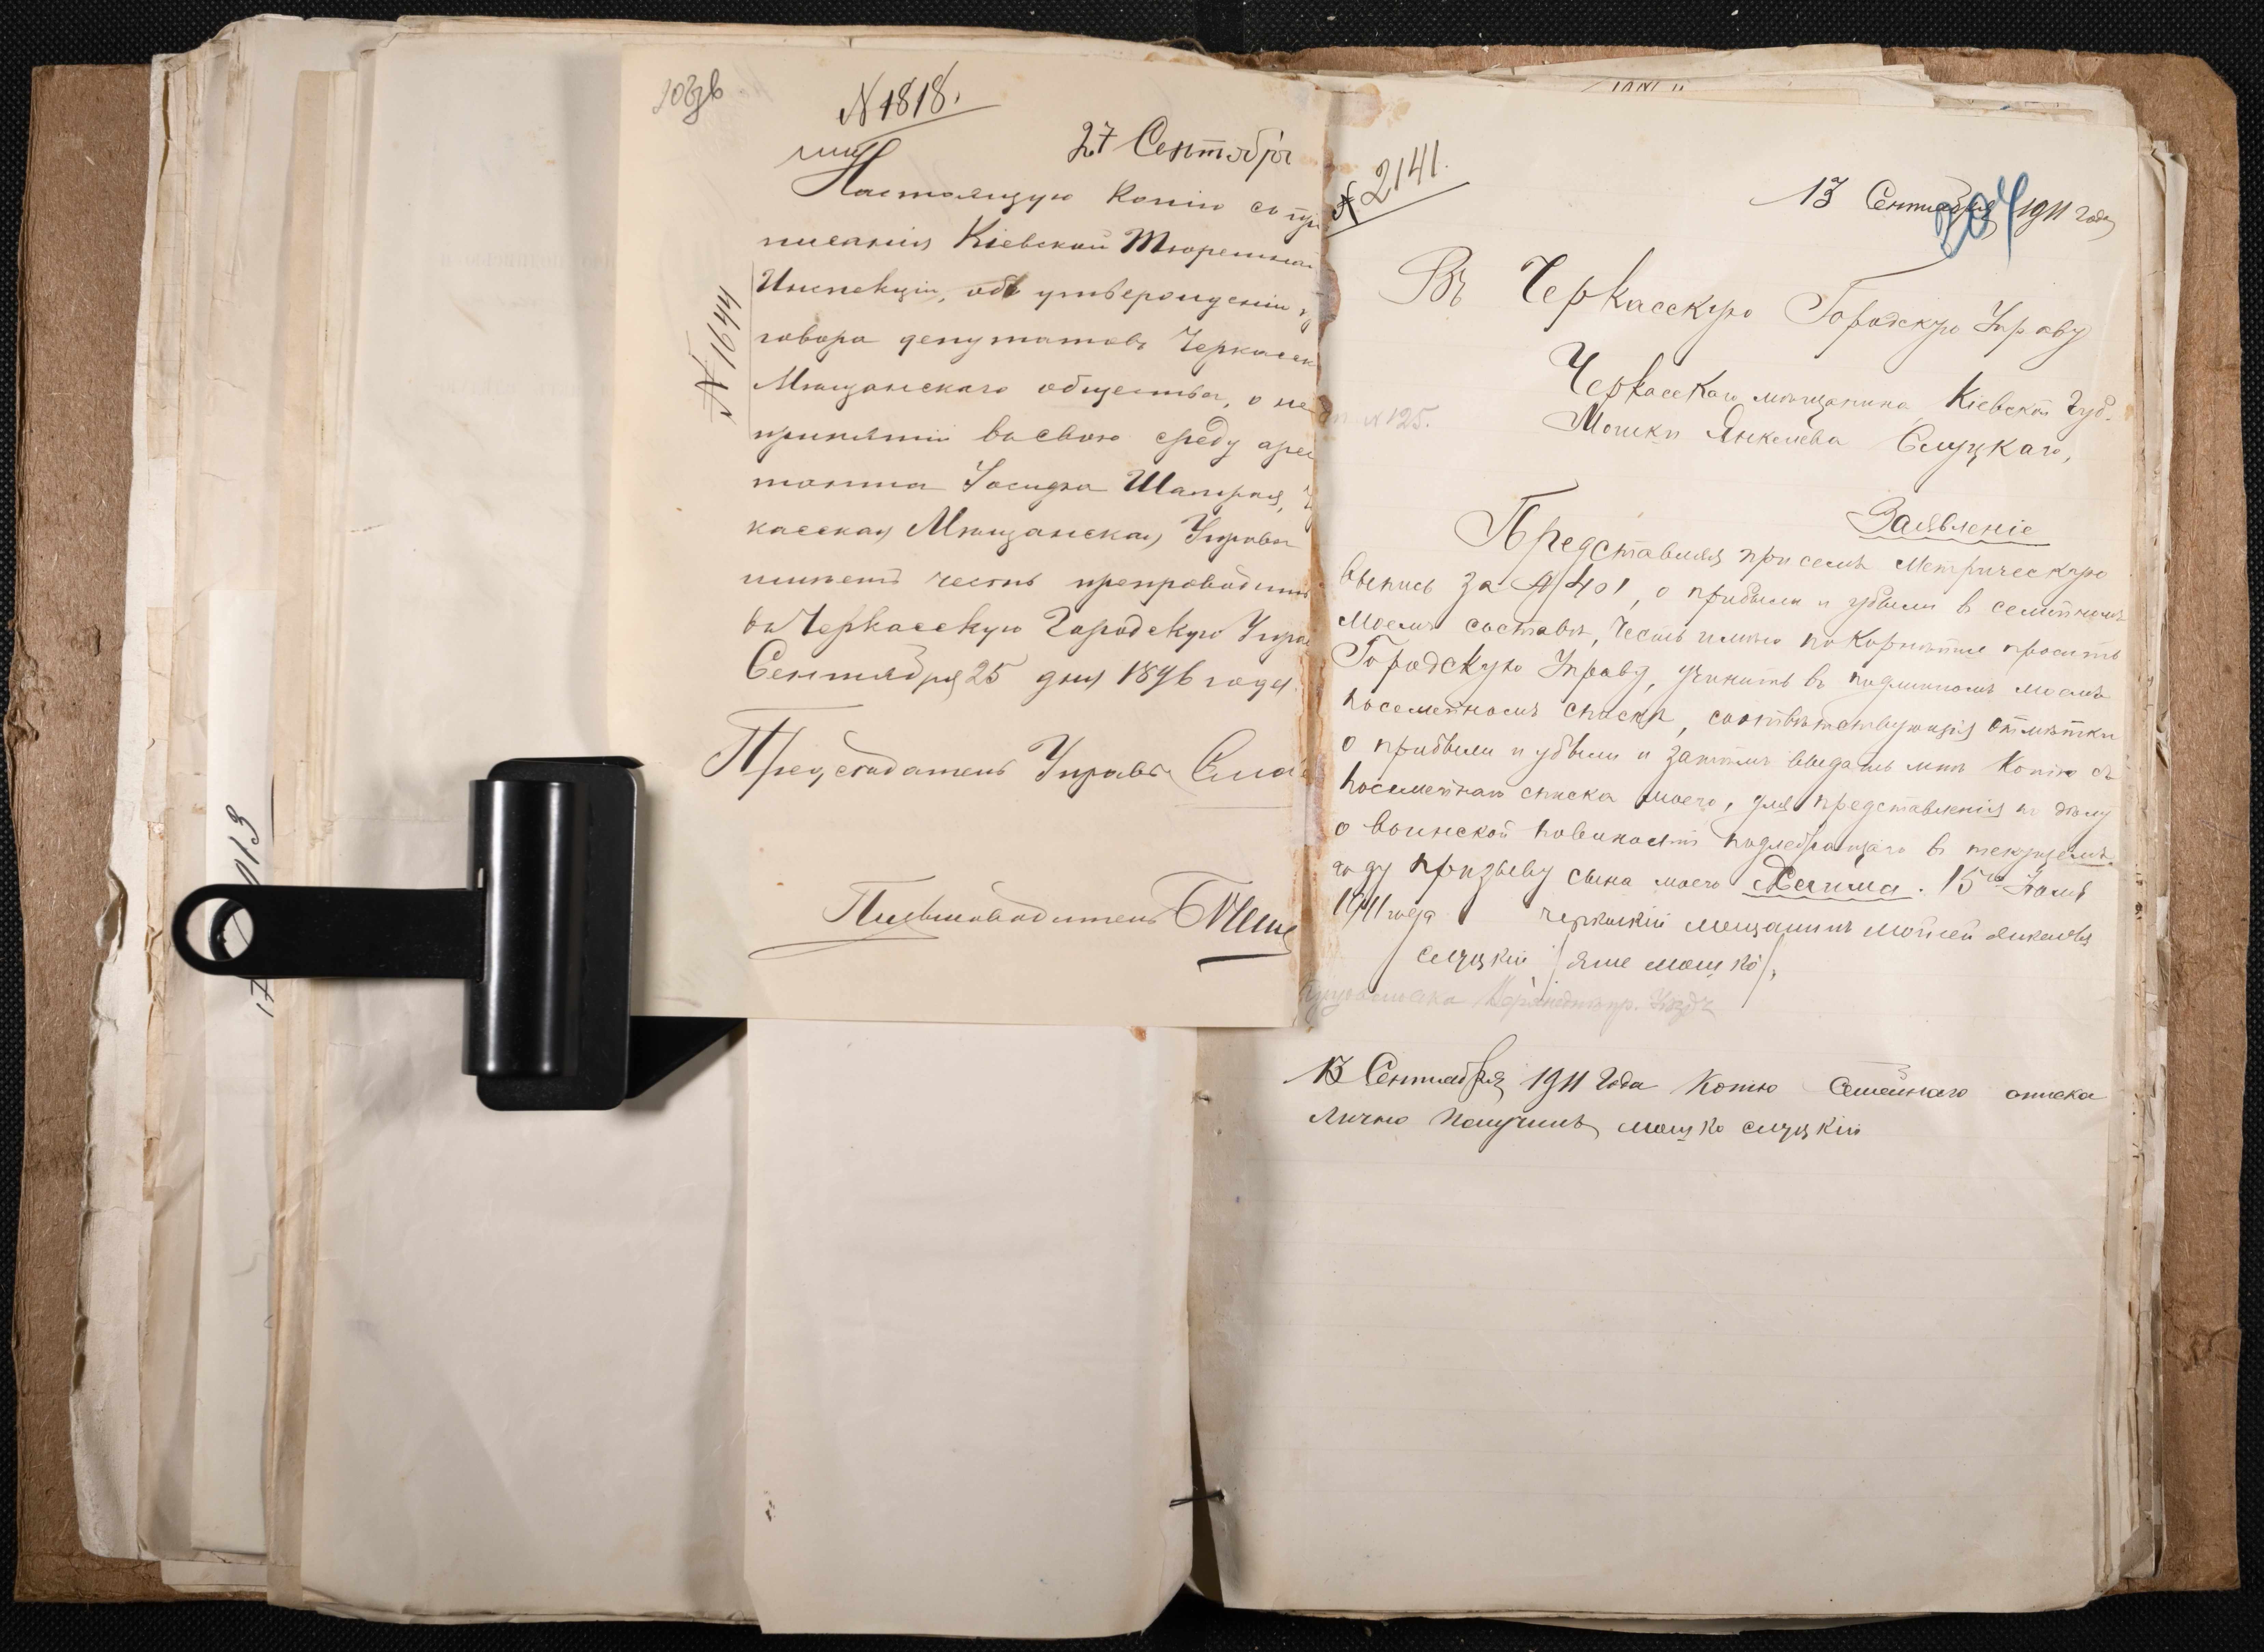 203зв
N 1818.
27 Сентября
Настоящую копію съ пред
писанія Кіевской Тюремной
Инспекціи, объ утвержденіи при
говора депутатовъ Черкасск
Мѣщанскаго общества, о не
принятіи въ свою среду арес
танта Іосифа Шапиры, Чер
касская Мѣщанская Управа
имѣетъ честь препроводить
въ Черкасскую Городскую Управ
Сентября 25 дня 1896 года.
Предсѣдатель Управы
Письмоводитель
N 1644
N 2141.
13 Сентября 1911 года
204
Въ Черкасскую Городскую Управу
Черкасскаго мѣщанина Кіевской губ.
Мошки Янкелева Слуцкаго,
N 125.
Заявленіе
Представляя при семъ Метрическую
выпись за № 401, о прибыли и убыли в семейномъ
моемъ составѣ, честь имѣю покорнѣйше просить
Городскую Управу, учинить въ подлинномъ моемъ
посемейномъ спискѣ, соотвѣтствующія отмѣтки
о прибыли и убыли и затѣмъ выдать мнѣ Копію съ
посемейнаго списка моего, для представленія по дѣлу
о воинской повинности подлежащаго въ текущемъ
году призыву сына моего Хаима. 15го Іюля
1911 года Черкаскій мещанинъ Мойсей Янкелевъ
Слуцкій / онъ же Мошко /.
13 Сентября 1911 Года Копію Семейнаго списка
Лично Получилъ Мошко Слуцкій